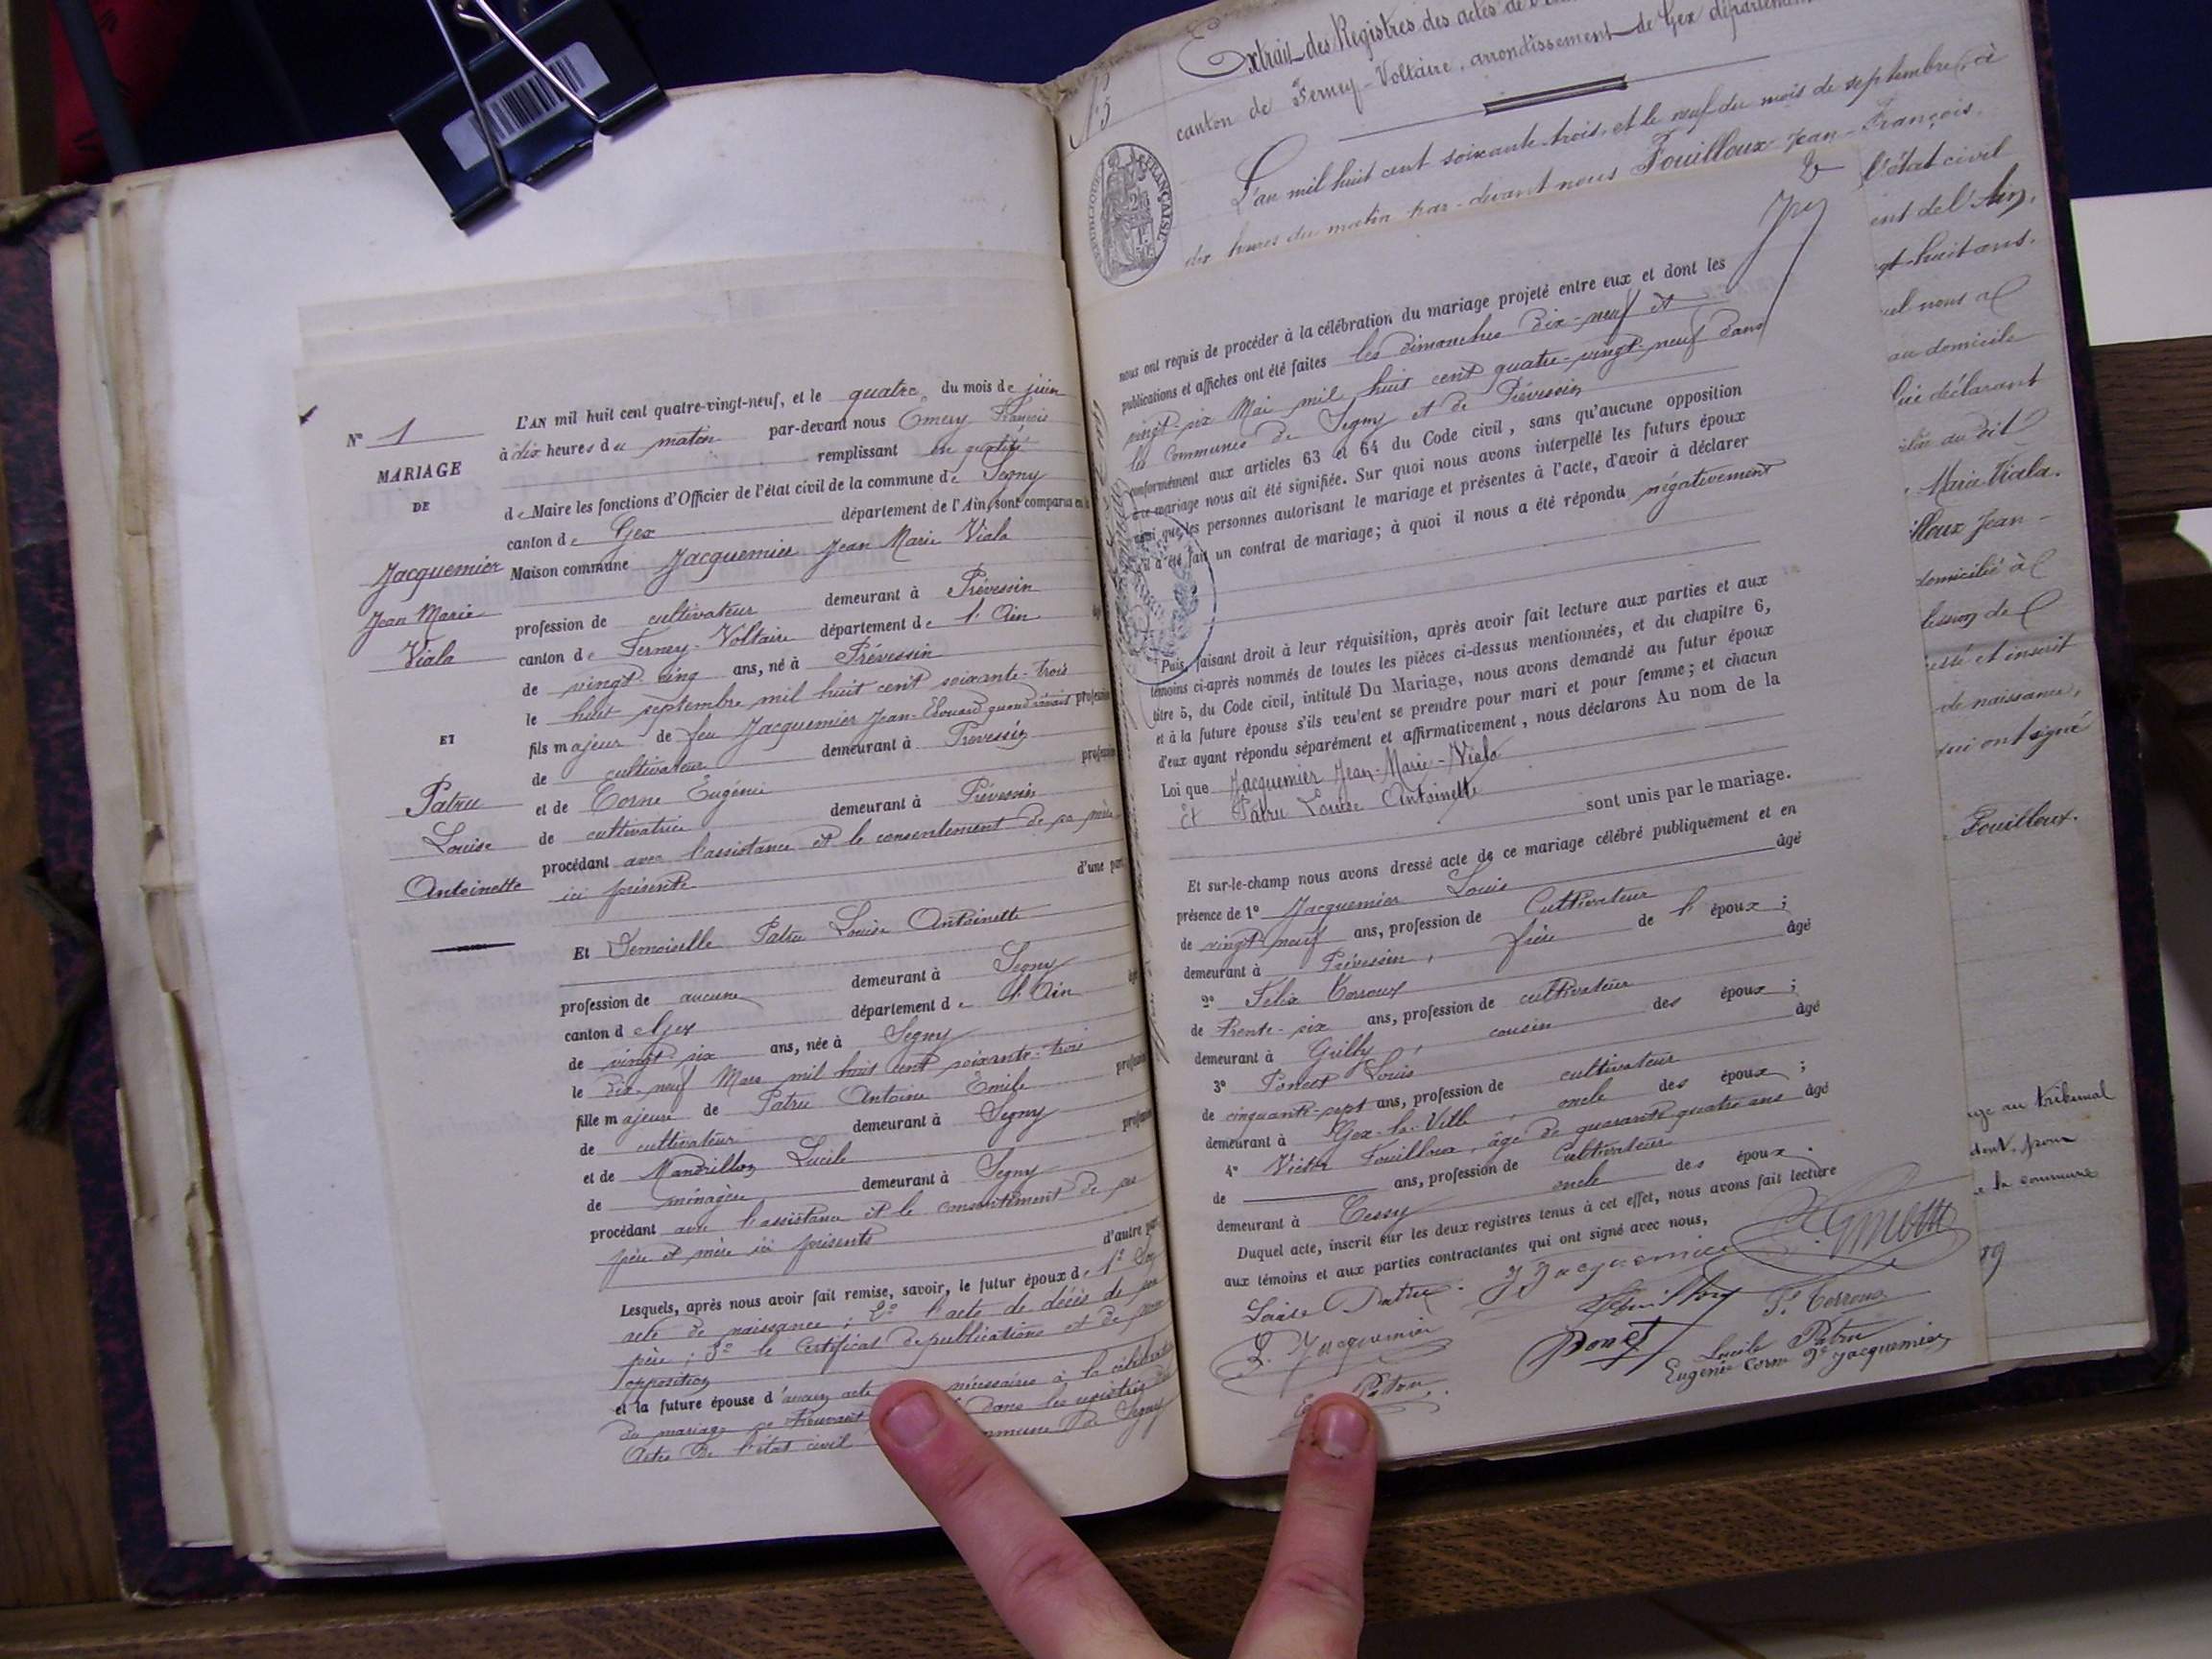 N° 1
MARIAGE
DE
Jacquemier
Jean Marie
Viala
ET
Patru
Louise
Antoinette
L'AN mil huit cent quatre-vingt-neuf, et le quatre du mois de juin
à dix heures du matin par-devant nous Emery François
remplissant en qualité
de Maire les fonctions d'Officier de l'état civil de la commune de Segny
canton de Gex département de l'Ain, sont comparus en la
Maison commune Jacquemier Jean Marie Viala
profession de cultivateur demeurant à Prévessin
canton de Ferney-Voltaire département de l'Ain
de vingt cinq ans, né à Prévessin
le huit septembre mil huit cent soixante-trois
fils majeur de feu Jacquemier Jean-Edouard quand vivait profession
de cultivateur demeurant à Prévessin
et de Corne Eugénie profession
de cultivatrice demeurant à Prévessin
procédant avec l'assistance et le consentement de sa mère
ici présente d'une part
Et Demoiselle Patru Louise Antoinette
profession de aucune demeurant à Segny
canton de Gex département de l'Ain
de vingt six ans, née à Segny
le dix-neuf Mars mil huit cent soixante-trois
fille majeure de Patru Antoine Emile profession
de cultivateur demeurant à Segny
et de Mandrillon Lucile
de ménagère demeurant à Segny
procédant avec l'assistance et le consentement de ses
père et mère ici présents d'autre part
Lesquels, après nous avoir fait remise, savoir, le futur époux de 1° Son
acte de naissance; 2° l'acte de décès de son
père; 3° le certificat de publications et de non
opposition
et la future épouse d'aucun acte nécessaires à la célébration
du mariage se trouvant dans les registres des
Actes de l'état civil commune de Segny
Extrait des Registres des actes de l'
canton de Ferney-Voltaire, arrondissement de Gex département
L'an mil huit cent soixante-trois, et le neuf du mois de septembre, à
dix heures du matin par-devant nous Fouilloux Jean-François
RÉPUBLIQUE FRANÇAISE
nous ont requis de procéder à la célébration du mariage projeté entre eux et dont les
publications et affiches ont été faites les dimanches dix-neuf et
vingt-six Mai mil huit cent quatre-vingt-neuf dans
les communes de Segny et de Prévessin
conformément aux articles 63 et 64 du Code civil, sans qu'aucune opposition
au mariage nous ait été signifiée. Sur quoi nous avons interpellé les futurs époux
ainsi que les personnes autorisant le mariage et présentes à l'acte, d'avoir à déclarer
s'il a été fait un contrat de mariage; à quoi il nous a été répondu négativement
Puis, faisant droit à leur réquisition, après avoir fait lecture aux parties et aux
témoins ci-après nommés de toutes les pièces ci-dessus mentionnées, et du chapitre 6,
titre 5, du Code civil, intitulé Du Mariage, nous avons demandé au futur époux
et à la future épouse s'ils veulent se prendre pour mari et pour femme; et chacun
d'eux ayant répondu séparément et affirmativement, nous déclarons Au nom de la
Loi que Jacquemier Jean-Marie-Viala
Et Patru Louise Antoinette
sont unis par le mariage.
Et sur-le-champ nous avons dressé acte de ce mariage célébré publiquement et en
présence de 1° Jacquemier Louis âgé
de vingt neuf ans, profession de Cultivateur
demeurant à Prévessin, frère de l'époux;
2° Félix Corroux âgé
de trente-six ans, profession de cultivateur
demeurant à Grilly, cousin des époux;
3° Poncet Louis âgé
de cinquante-sept ans, profession de cultivateur
demeurant à Gex-la-Ville, oncle des époux;
4° Victor Fouilloux, âgé de quarante quatre ans âgé
de ans, profession de Cultivateur
demeurant à Cessy oncle des époux.
Duquel acte, inscrit sur les deux registres tenus à cet effet, nous avons fait lecture
aux témoins et aux parties contractantes qui ont signé avec nous,
Louise Patru. J Jacquemier
L. Jacquemier Fouilloux F. Corroux
Poncet Lucile Patru
Eugénie Corne Ve Jacquemier
Patru
l'état civil
ent de l'Ain,
gt-huit ans.
uel nous a
au domicile
lui déclarant
Marie Viala.
illoux Jean-
domicilié à
lesson de
esté et inscrit
de naissance,
qui ont signé
Fouilloux.
au tribunal
dent. pour
e la commune